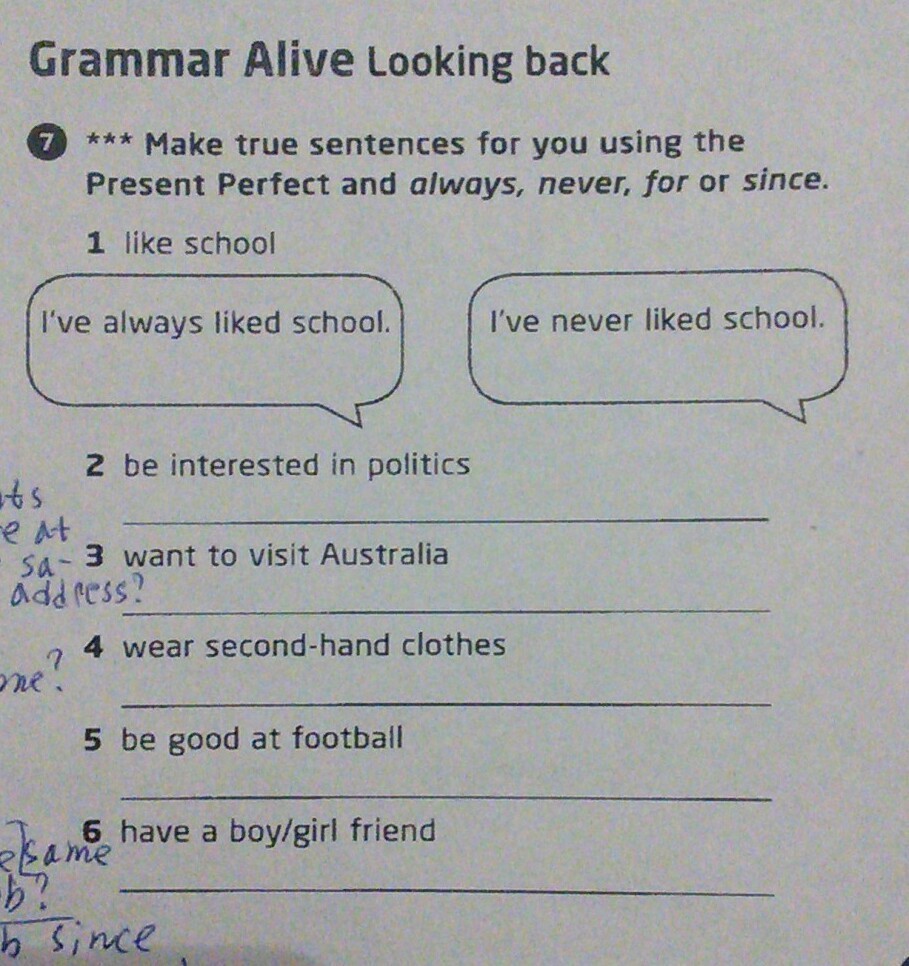 Grammar Alive Looking back
7 *** Make true sentences for you using the
Present Perfect and always, never, for or since.
1 like school
I've always liked school.
I've never liked school.
2 be interested in politics
at
3 want to visit Australia
sa-
address?
4 wear second-hand clothes
5 be good at football
6 have a boy/girl friend
same
since